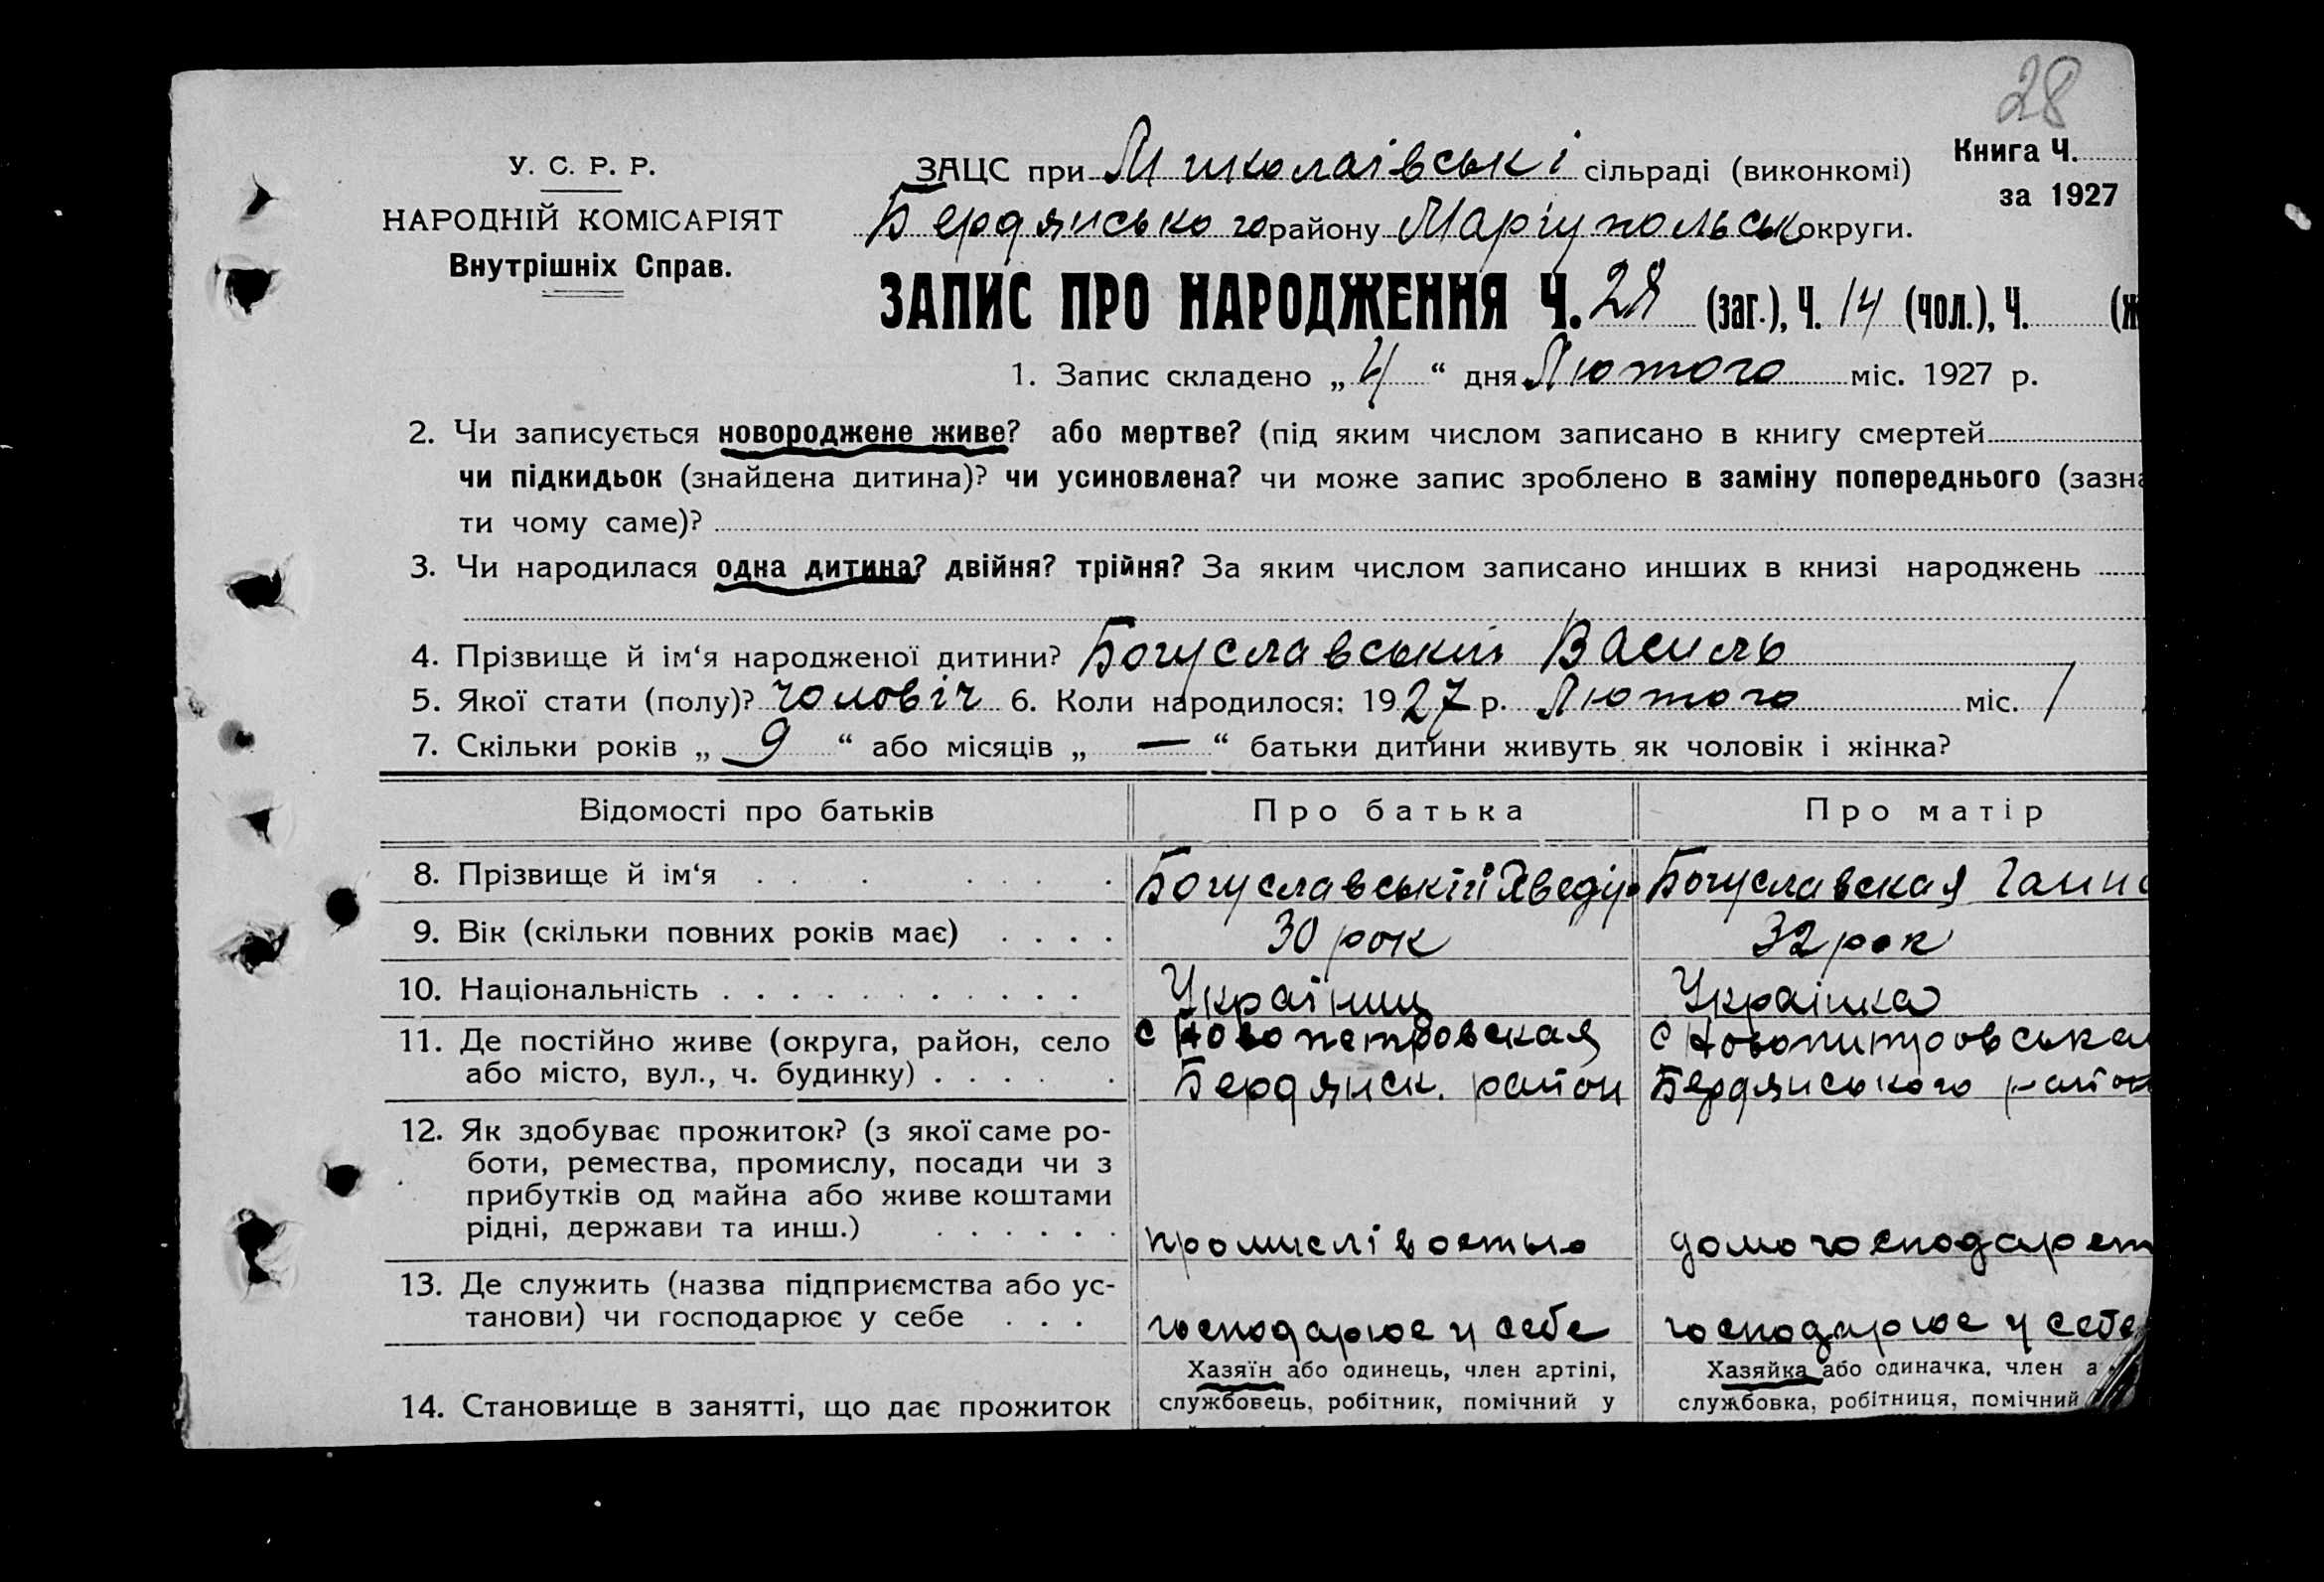 28
У. С. Р. Р.
НАРОДНІЙ КОМІСАРІЯТ
Внутрішніх Справ.
ЗАЦС при Миколаївські сільраді (виконкомі)
Книга Ч.
за 1927
Бердянського району Маріупольськ округи.
ЗАПИС ПРО НАРОДЖЕННЯ Ч. 28 (заг.), Ч. 14 (чол.), Ч. (ж
1. Запис складено „ 4 “ дня Лютого міс. 1927 р.
2. Чи записується новороджене живе? або мертве? (під яким числом записано в книгу смертей
чи підкидьок (знайдена дитина)? чи усиновлена? чи може запис зроблено в заміну попереднього (зазна
ти чому саме)?
3. Чи народилася одна дитина? двійня? трійня? За яким числом записано инших в книзі народжень
4. Прізвище й ім‘я народженої дитини? Богуславський Василь
5. Якої стати (полу)? чоловіч 6. Коли народилося: 1927 р. Лютого міс. 1
7. Скільки років „ 9 “ або місяців „ — “ батьки дитини живуть як чоловік і жінка?
Відомості про батьків Про батька Про матір
8. Прізвище й ім‘я . . . . . . . Богуславський Хведір Богуславская Ганна
9. Вік (скільки повних років має) . . . . 30 рок 32 рок
10. Національність . . . . . . . . . . . Українец Українка
11. Де постійно живе (округа, район, село с Новопетровская с Новопитровська
або місто, вул., ч. будинку) . . . . . Бердянск. район Бердянського район
12. Як здобуває прожиток? (з якої саме ро-
боти, ремества, промислу, посади чи з
прибутків од майна або живе коштами
рідні, держави та инш.) . . . . . . домогосподарст
13. Де служить (назва підприємства або ус-
танови) чи господарює у себе . . . господарюе у себе господарюе у себе
Хазяїн або одинець, член артілі, Хазяйка або одиначка, член а
14. Становище в занятті, що дає прожиток службовець, робітник, помічний у службовка, робітниця, помічний